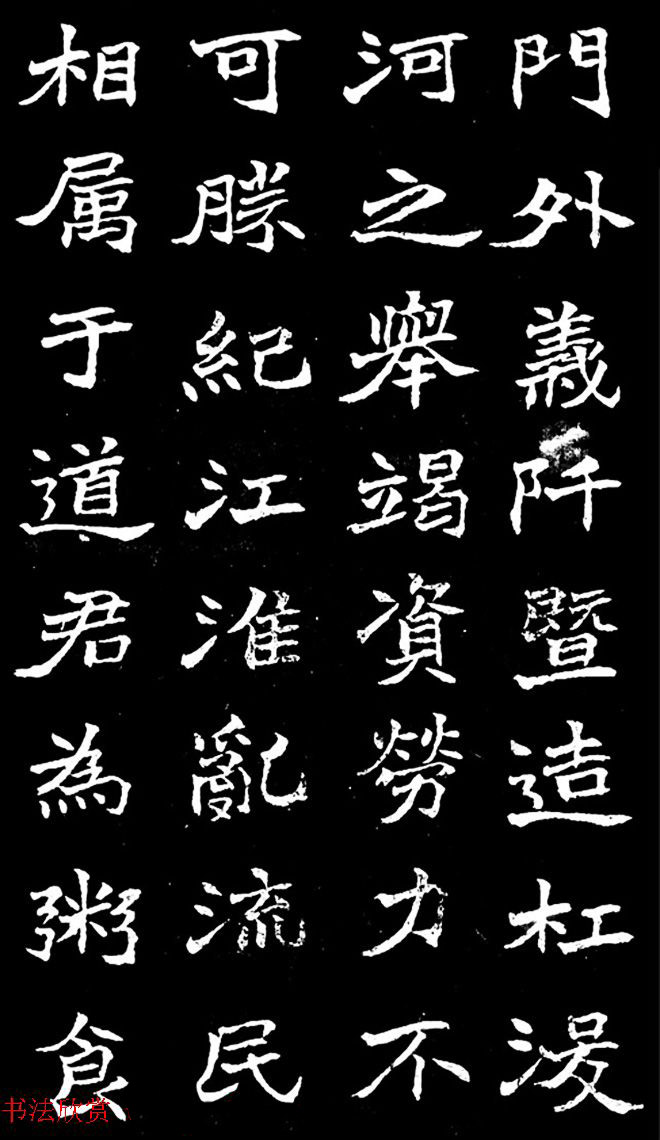 門外義阡暨造杠浚
河之舉竭資勞力不
可勝紀江淮亂流民
相属于道君為粥食
书法欣赏